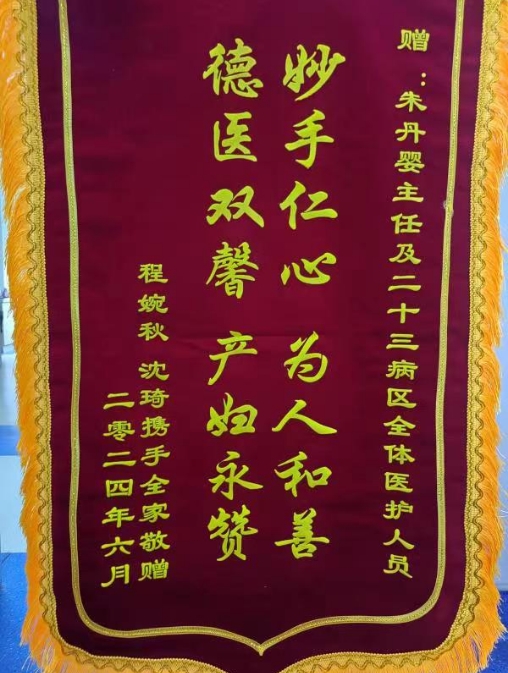 赠：朱丹婴主任及二十三病区全体医护人员
妙手仁心 为人和善
德医双馨 产妇永赞
程婉秋 沈琦携手全家敬赠
二零二四年六月